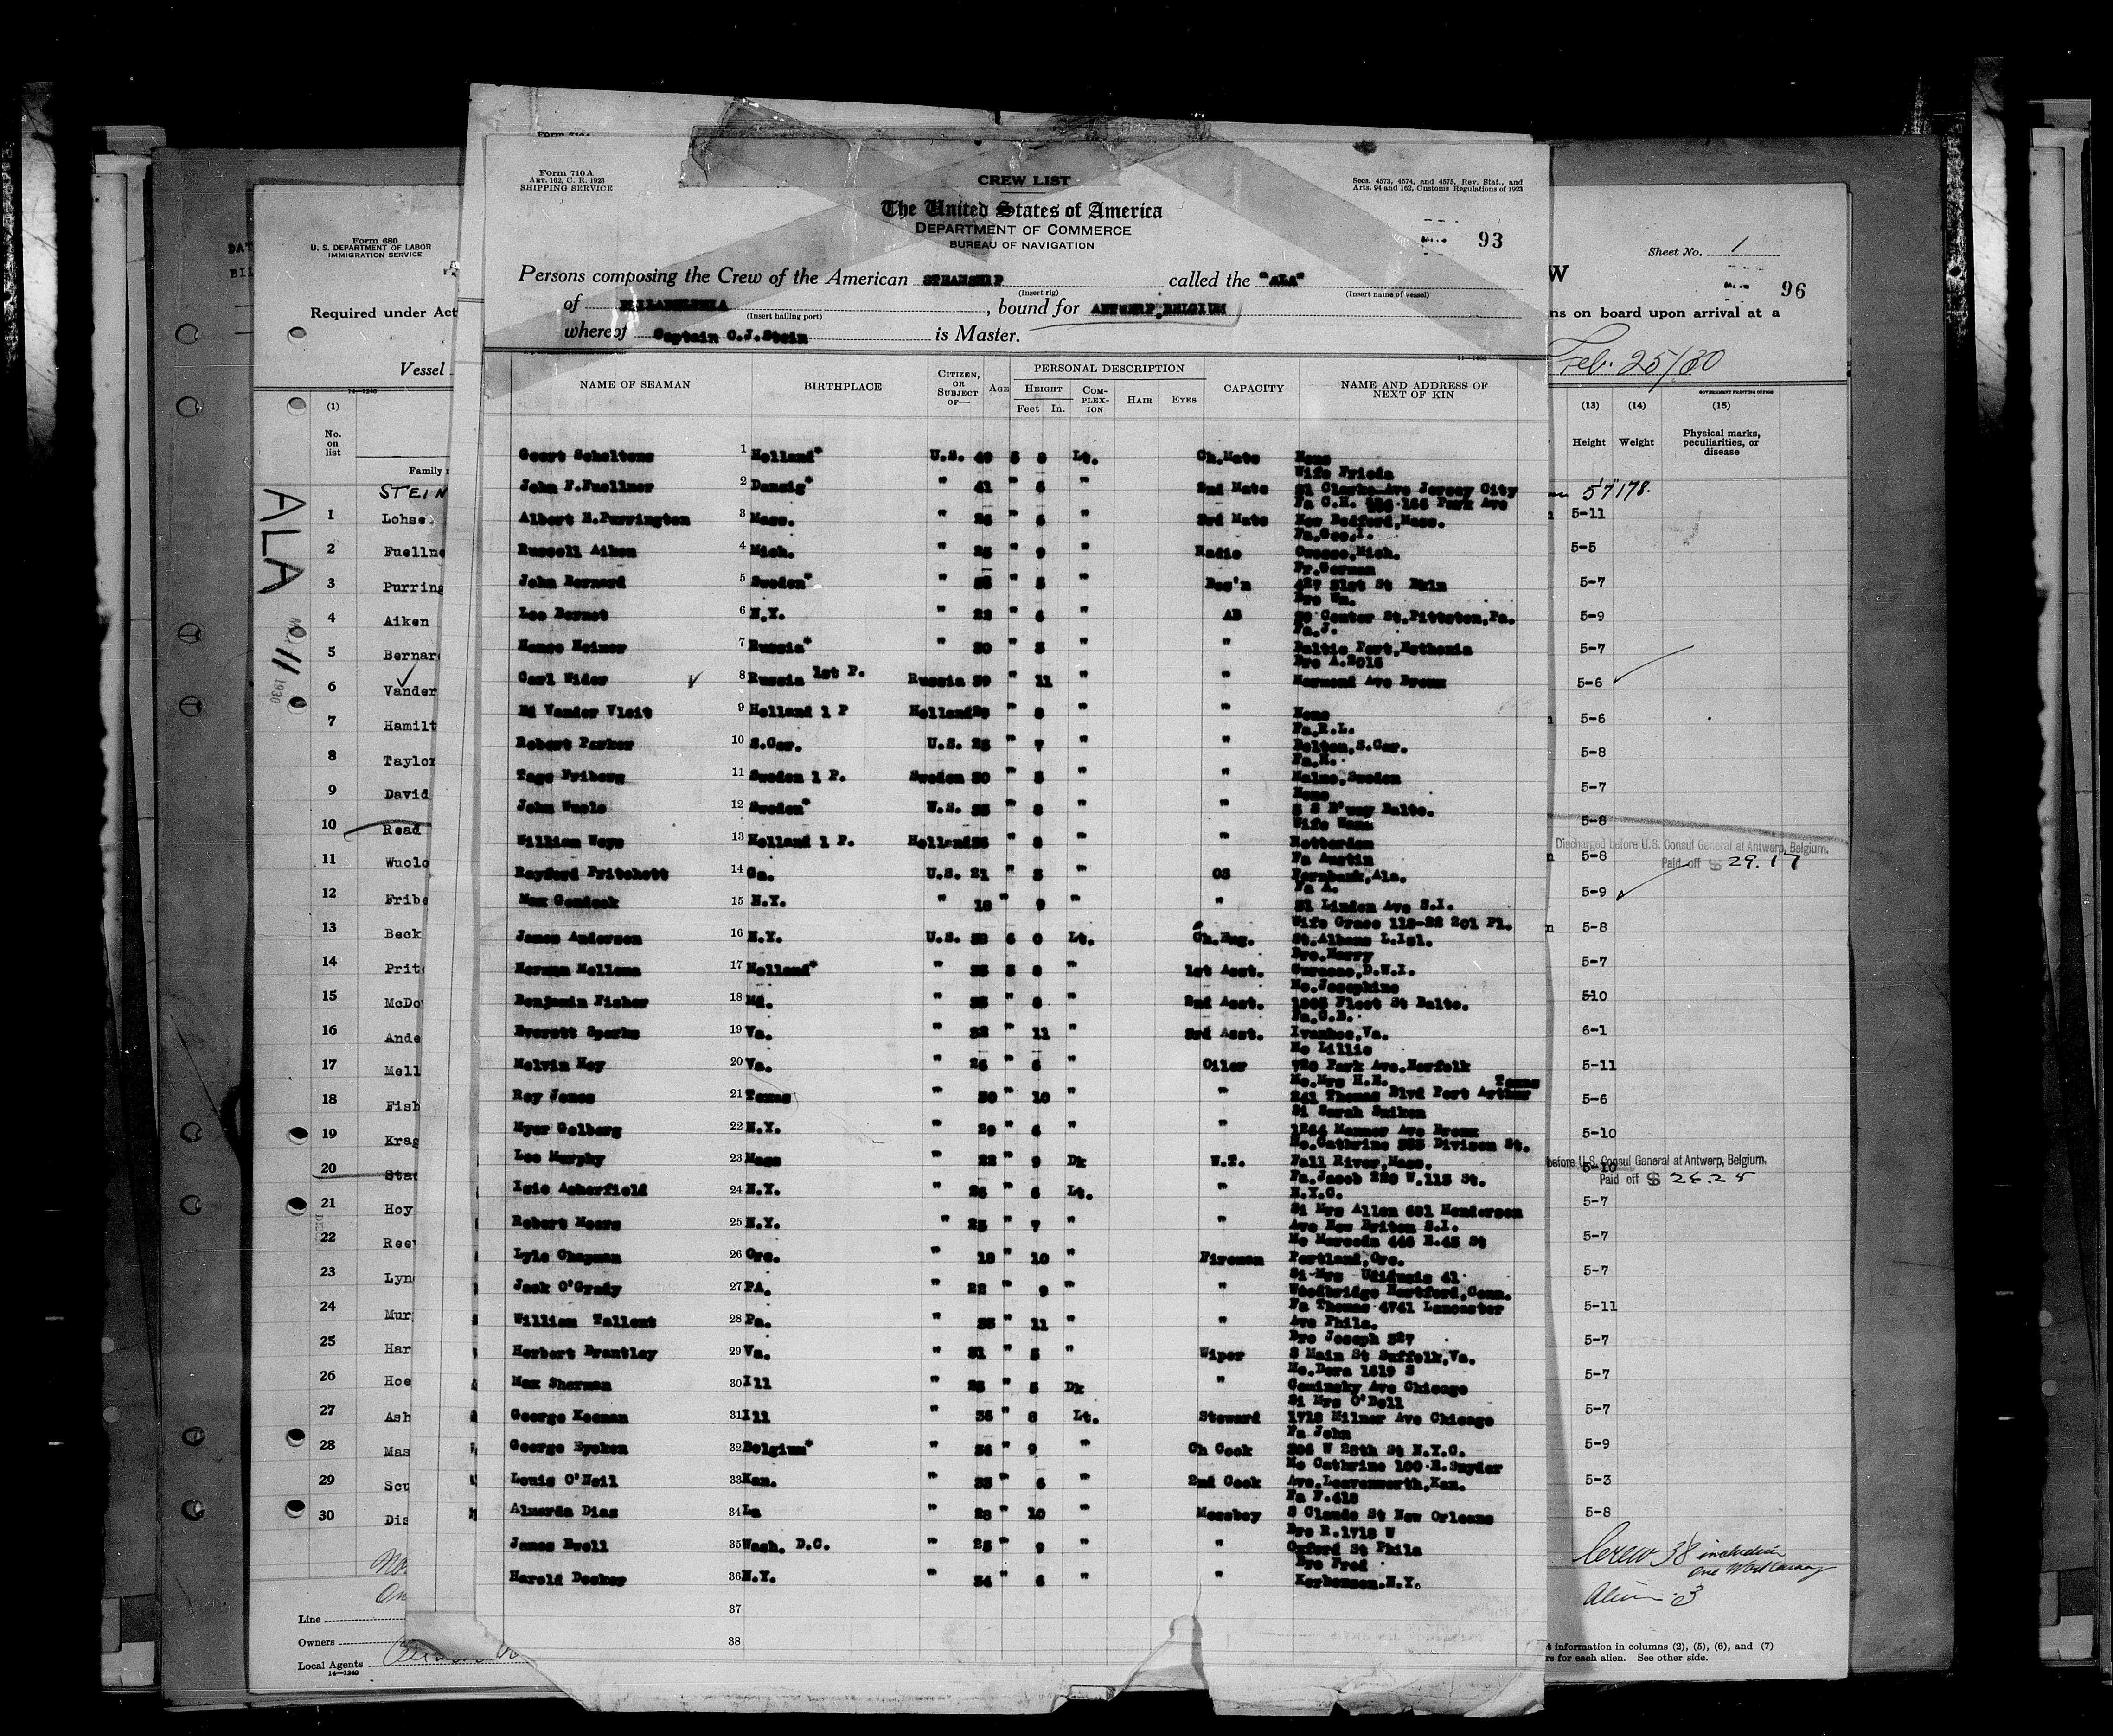 Form 710A
ART. 162, C. R. 1923
SHIPPING SERVICE
CREW LIST
Secs. 4573, 4574, and 4575, Rev. Stat., and
Arts. 94 and 162, Customs Regulations of 1923
The United States of America
DEPARTMENT OF COMMERCE
BUREAU OF NAVIGATION
93
Persons composing the Crew of the American STEAMSHIP called the "ALA"
(Insert rig) (Insert name of vessel)
of PHILADELPHIA, bound for ANTWERP, BELGIUM
(Insert hailing port)
whereof Captain O.J.Stein is Master.
NAME OF SEAMAN BIRTHPLACE CITIZEN, OR SUBJECT OF— AGE PERSONAL DESCRIPTION CAPACITY NAME AND ADDRESS OF NEXT OF KIN
HEIGHT Feet In. COMPLEXION HAIR EYES
Geert Scheltens 1 Holland* U.S. 5 Lt. Ch.Mate None
Wife Frieda
John F.Fuellner 2 Danzig* " 41 " " 2nd Mate Ave Jersey City
Park Ave
Albert H.Purrington 3 Mass. " 26 " 6 " 3rd Mate New Bedford,Mass.
Fa.Geo.I.
Russell Aiken 4 Mich. " 25 " 9 " Radio Owosso,Mich.
John Bernard 5 Sweden* " " 5 " Bos'n 427 31st St Bkln
Bro Wm.
Leo Bernet 6 N.Y. " 22 " 6 " AB Center St.Pittston,Pa.
Fa.J.
7 Russia* " 30 " " " Baltic Port,Esthonia
Bro A.2016
Carl Wider 8 Russia 1st P. Russia 39 " 11 " Ave Bronx
Ed Vander Vleit 9 Holland 1 P Holland " 8 " " None
Fa.R.L.
Robert Parker 10 S.Car. U.S. 25 " 7 " " Belton,S.Car.
Tage Friberg 11 Sweden 1 P. Sweden 30 " " " Malmo,Sweden
None
John Wuolo 12 Sweden* U.S. " 8 " B'way Balto.
Wife
William Weys 13 Holland 1 P. Holland " 8 Rotterdam
Fa Austin
Rayford Pritchett 14 Ga. U.S. 21 " " OS Fernbank,Ala.
Fa A.
Max 15 N.Y. " 18 " 9 " " Linden Ave S.I.
Wife Grace 118-22 201 Pl.
James Anderson 16 N.Y. U.S. 6 0 Lt. Ch.Eng. St.Albans L.Isl.
Bro.Harry
Herman Mellema 17 Holland* " 5 " 1st Asst. Curacao,D.W.I.
Mo.Josephine
Benjamin Fisher 18 Md. " " " 2nd Asst. Fleet St Balto.
Fa.C.B.
Everett Sparks 19 Va. " " 11 " 3rd Asst. Ivanhoe,Va.
Mo Lillie
Melvin Hoy 20 Va. " 26 " 6 " Oiler Park Ave.Norfolk
Mo.Mrs H.E. Texas
Roy Jones 21 Texas " 30 " 10 " 241 Thomas Blvd Port Arthur
Si Sarah
Myer Golberg 22 N.Y. " 29 " 6 " " Ave Bronx
Mo.Cathrine Divison St.
Leo Murphy 23 Mass " 22 " 9 Dk W.T. Fall River,Mass.
Fa.Jacob 220 W.113 St.
Isie Asherfield 24 N.Y. " 26 " 6 Lt. " N.Y.C.
Si Mrs Allen 681 Henderson
Robert Moore 25 N.Y. " 25 " 7 " " Ave New Briton S.I.
Lyle Chapman 26 Ore. " 18 " 10 " Fireman Portland,Ore.
Si Mrs 41
Jack O'Grady 27 PA. " 22 " 9 " " Woodbridge Hartford,Conn.
Fa Thomas 4741 Lancaster
William Tallent 28 Pa. " " 11 " Ave Phila.
Bro Joseph 327
Herbert Brantley 29 Va. " 31 " 5 " Wiper S Main St Suffolk,Va.
Mo.Dora 1619 S
Max Sherman 30 Ill " 25 " 5 Dk " Ave Chicago
Si Mrs O'Dell
George Keenan 31 Ill " 36 " 8 Lt. Steward 1718 Milner Ave Chicago
Fa John
George Eycken 32 Belgium* " 34 " 9 " Ch Cook W 28th St N.Y.C.
Mo Cathrine 100 E.Snyder
Louis O'Neil 33 Kan. " 35 " 6 " 2nd Cook Ave.Leavenworth,Kan.
Fa F.418
Almerda Dias 34 La " 28 " 10 " Messboy S Claude St New Orleans
Bro R.1718 W
James Ewell 35 Wash. D.C. " 25 " 9 " " Oxford St Phila
Bro Fred
Harold Decker 36 N.Y. " 34 " 6 " " Kerhonson.N.Y.
37
38
Form 680
U. S. DEPARTMENT OF LABOR
IMMIGRATION SERVICE
Required under Act
Vessel
14—1240
(1)
No. on list
Family
ALA
11
1930
STEIN
1 Lohse
2 Fuellne
3 Purring
4 Aiken
5 Bernar
6 Vander
7 Hamilt
8 Taylor
9 David
10 Read
11 Wuolo
12 Fribe
13 Beck
14 Prit
15 McDo
16 Ande
17 Mell
18 Fish
19 Krag
20 Stac
21 Hoy
22 Ree
23 Lyn
24 Mur
25 Har
26 Hoe
27 Ash
28 Mas
29 Scu
30 Dis
Line
Owners
Local Agents
14—1240
Sheet No. 1
W
96
ns on board upon arrival at a
Feb. 25/30
GOVERNMENT PRINTING OFFICE
(13) (14) (15)
Height Weight Physical marks, peculiarities, or disease
5'7" 178.
5-11
5-5
5-7
5-9
5-7
5-6
5-6
5-8
5-7
5-8
Discharged before U.S. Consul General at Antwerp, Belgium.
5-8
Paid off $ 29.17
5-9
5-8
5-7
5-10
6-1
5-11
5-6
5-10
before U.S. Consul General at Antwerp, Belgium.
5-10
Paid off $
5-7
5-7
5-7
5-11
5-7
5-7
5-7
5-9
5-3
5-8
Crew 38 including
one Workaway
Alien 3
t information in columns (2), (5), (6), and (7)
rs for each alien. See other side.